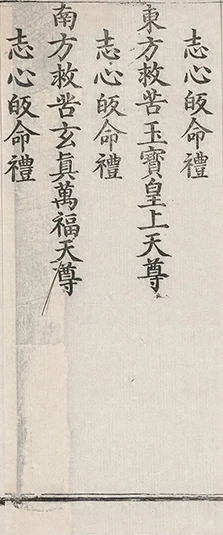 志心皈命禮
東方救苦玉寶皇上天尊
志心皈命禮
南方救苦玄真萬福天尊
志心皈命禮